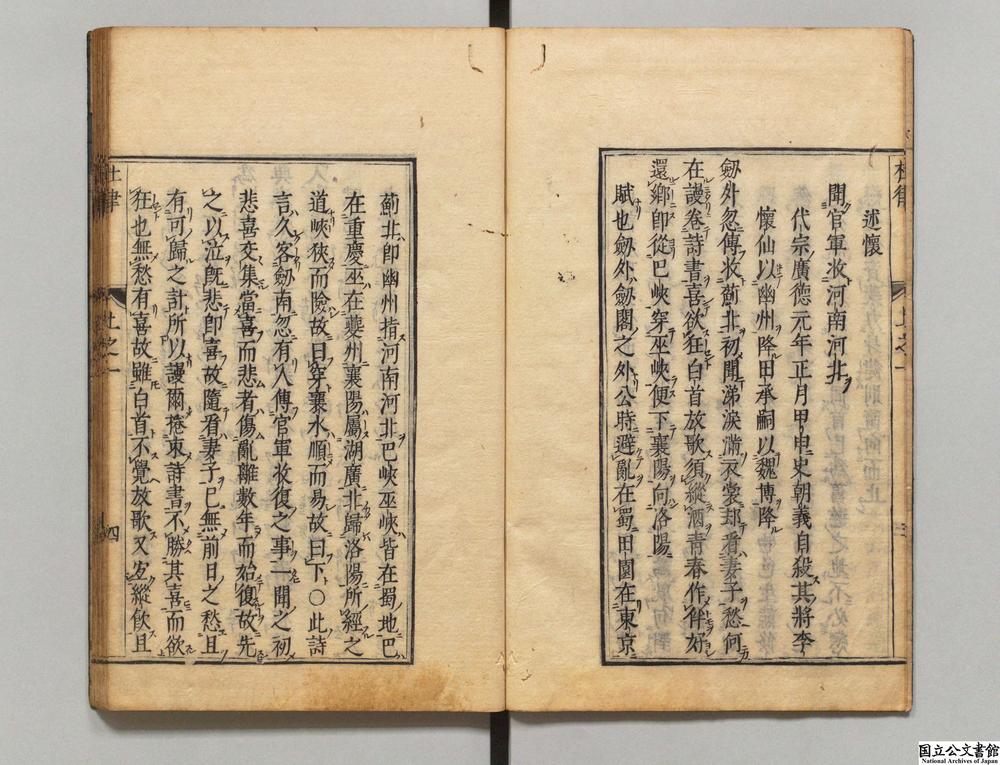 述懷
聞官軍收河南河北
代宗廣德元年正月甲申史朝義自殺其將李
懷仙以幽州降田承嗣以魏博降
劔外忽傳收薊北初聞涕淚滿衣裳却看妻子愁何
在謾卷詩書喜欲狂白首放歌須縱酒青春作伴好
還鄉即從巴峽穿巫峽便下襄陽向洛陽
賦也劔外劔閣之外公時避亂在蜀田園在東京
薊北即幽州指河南河北巴峽巫峽皆在蜀地巴
在重慶巫在夔州襄陽屬湖廣北歸洛陽所經之
道峽狹而險故曰穿襄水順而易故曰下○此詩
言久客劔南忽有人傳官軍收復之事一聞之初
悲喜交集當喜而悲者傷亂離數年而始復故先
之以泣既悲即喜故隨看妻子已無前日之愁且
有可歸之計所以謾爾捲束詩書不勝其喜而欲
狂也無愁有喜故雖白首不覺放歌又宜縱飲且
杜律
上之一
四
国立公文書館
National Archives of Japan